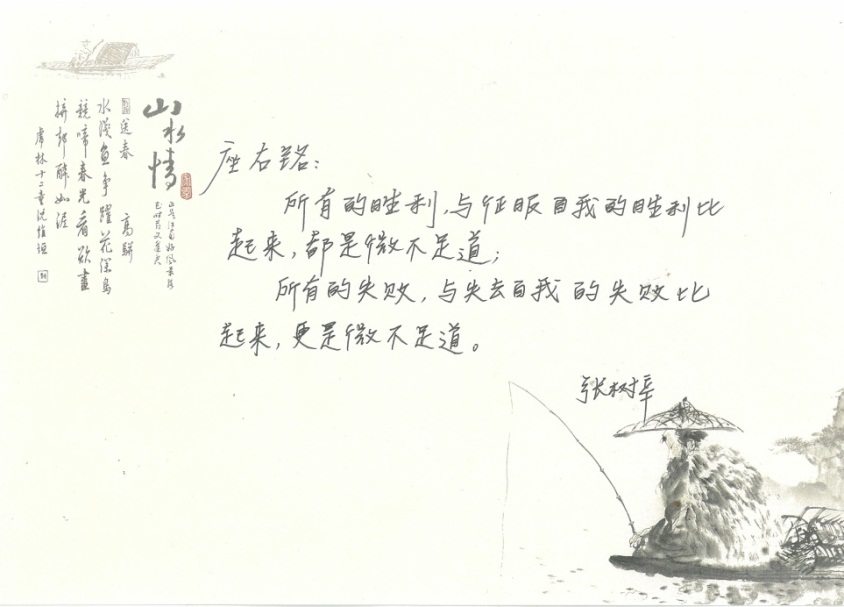 座右铭:
所有的胜利,与征服自我的胜利比
起来,都是微不足道;
所有的失败,与失去自我的失败比
起来,更是微不足道。
张树辛
山水情
送春
高骈
水浅鱼争跃花深鸟
竞啼春光看欲尽
拚却醉如泥